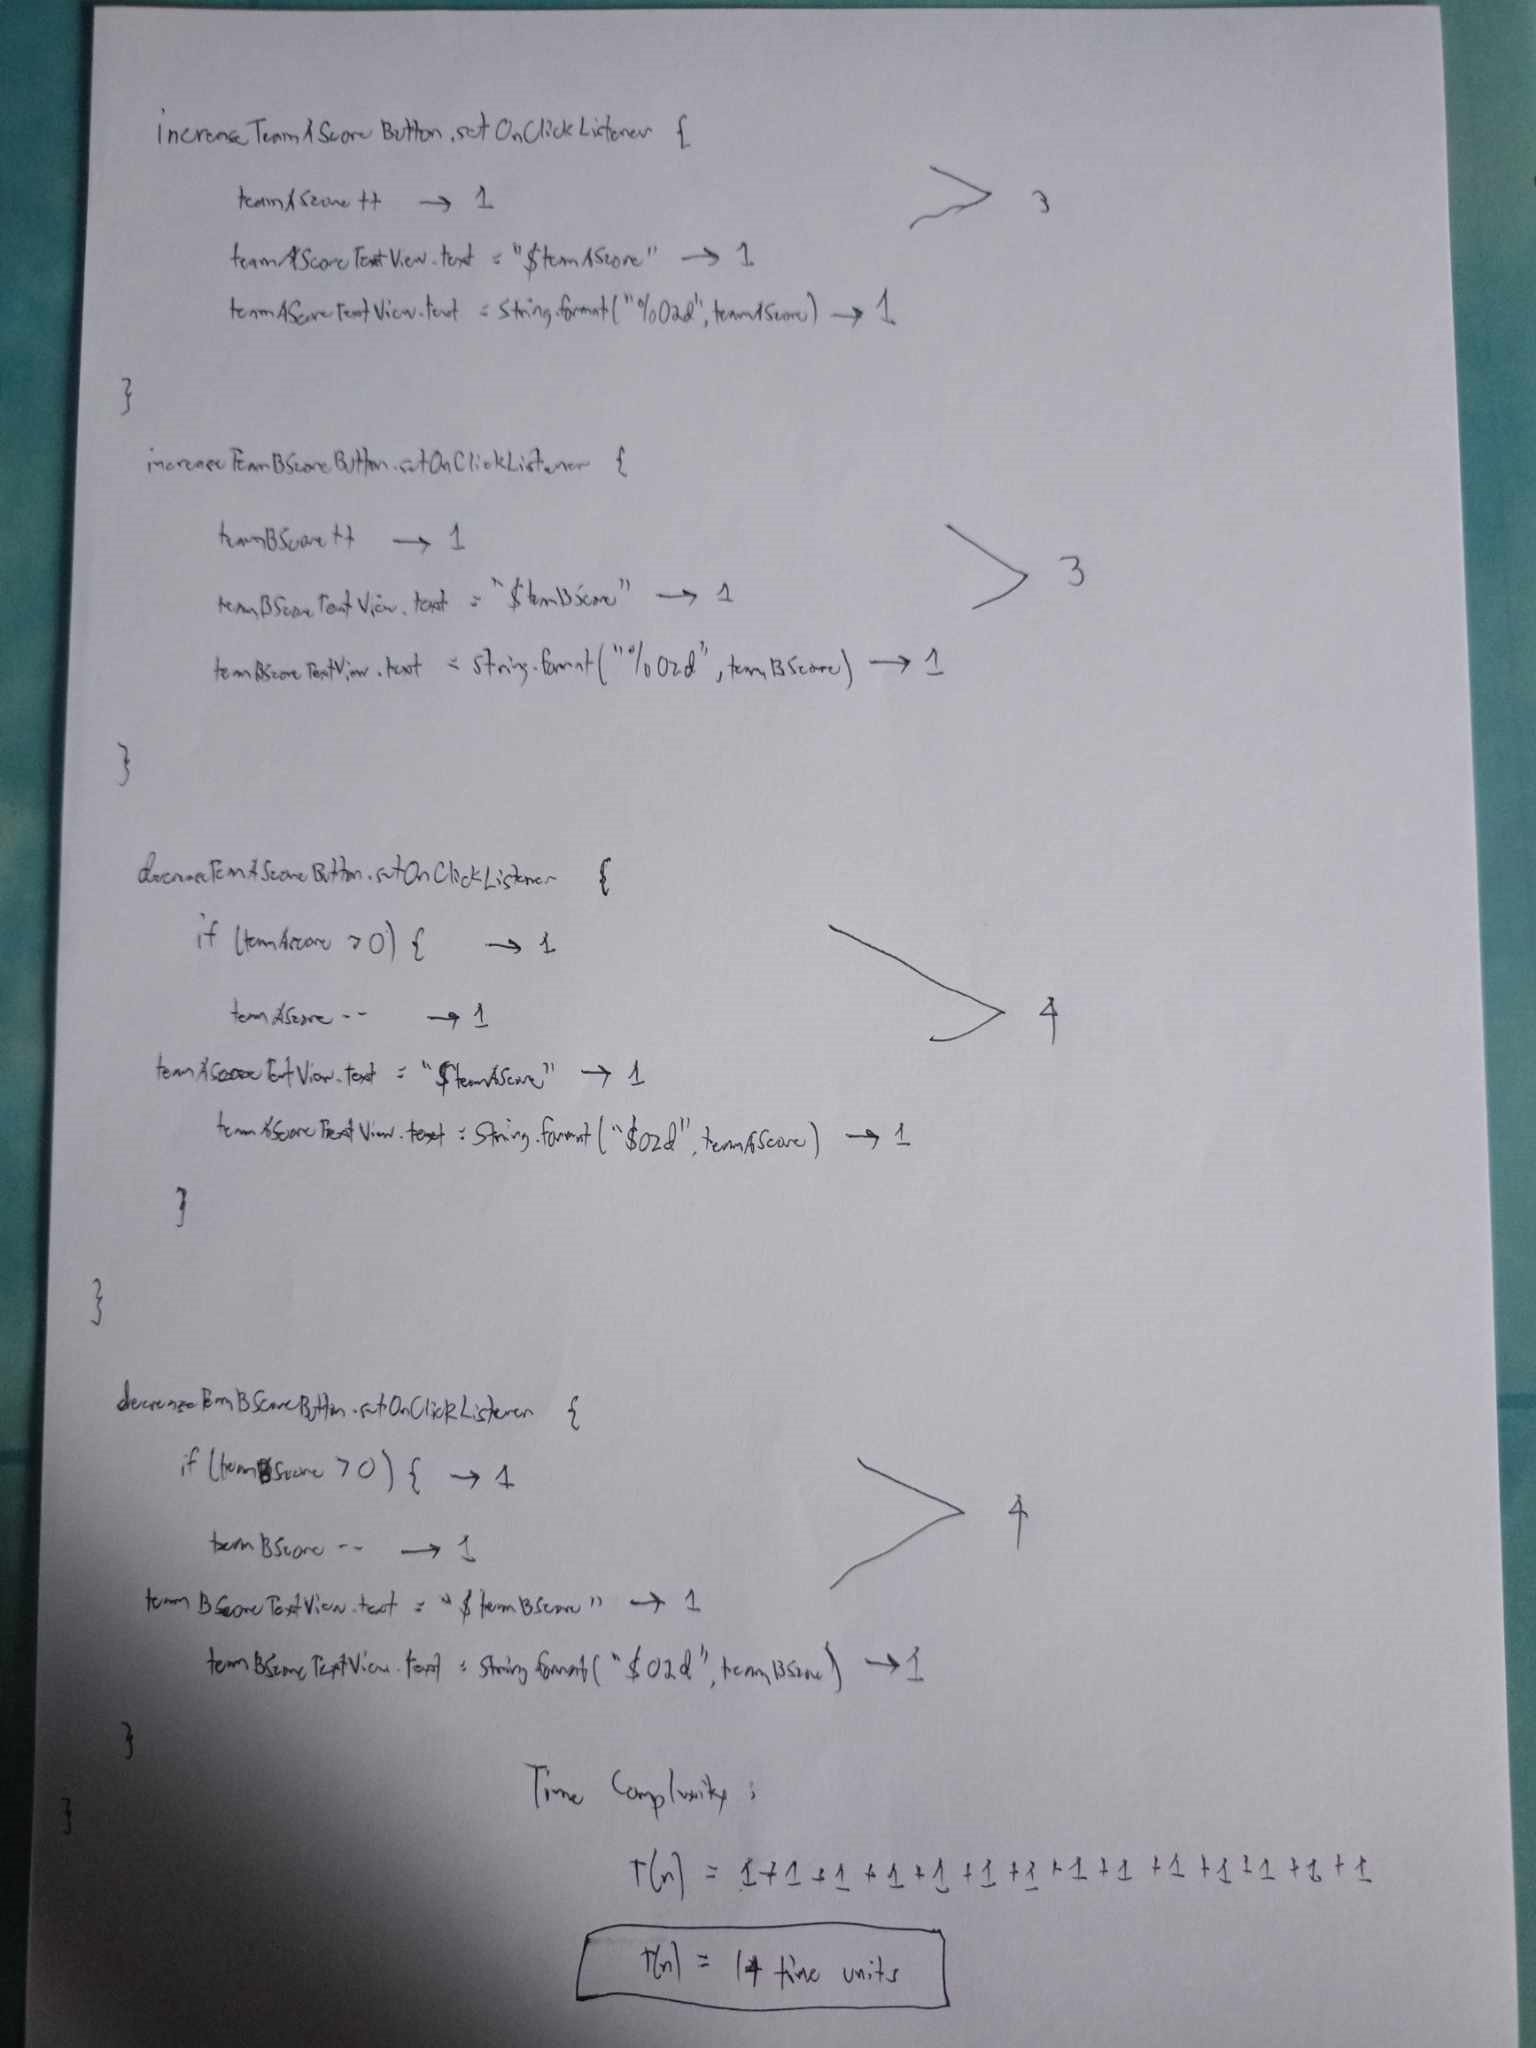 increaseTeamAScoreButton.setOnClickListener {
teamAScore++ → 1
3
teamAScoreTextView.text = "$teamAScore" → 1
teamAScoreTextView.text = String.format("%02d", teamAScore) → 1
}
increaseTeamBScoreButton.setOnClickListener {
teamBScore++ → 1
3
teamBScoreTextView.text = "$teamBScore" → 1
teamBScoreTextView.text = String.format("%02d", teamBScore) → 1
}
decreaseTeamAScoreButton.setOnClickListener {
if (teamAscore > 0) { → 1
teamAScore -- → 1
4
teamAScoreTextView.text = "$teamAScore" → 1
teamAScoreTextView.text = String.format("$02d", teamAScore) → 1
}
}
decreaseTeamBScoreButton.setOnClickListener {
if (teamBScore > 0) { → 1
4
teamBScore -- → 1
teamBScoreTextView.text = "$teamBScore" → 1
teamBScoreTextView.text = String.format("$02d", teamBScore) → 1
}
Time Complexity:
}
T(n) = 1+1+1+1+1+1+1+1+1+1+1+1+1+1
T(n) = 14 time units